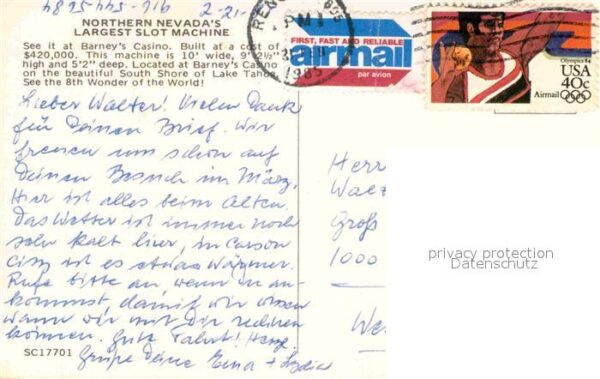 702-544-5284 2-21-
NORTHERN NEVADA'S
LARGEST SLOT MACHINE
See it at Barney's Casino. Built at a cost of
$420,000. This machine is 10' wide, 9'2½"
high and 5'2" deep. Located at Barney's Casino
on the beautiful South Shore of Lake Tahoe.
See the 8th Wonder of the World!
RENO
PM
1985
FIRST, FAST AND RELIABLE
airmail
par avion
Olympics 84
USA
40c
Airmail
Lieber Walter! Vielen Dank
für Deinen Brief. Wir
freuen uns schon auf
Deinen Besuch im März.
Hier ist alles beim Alten.
Das Wetter ist immer noch
sehr kalt hier, in Carson
City ist es etwas wärmer.
Rufe bitte an, wenn Du an-
kommst damit wir wissen
wann wir mit Dir rechnen
können. Gute Fahrt! Herzl.
Grüße Deine Erna + Lydia
SC17701
Herr
Walt
Groß
1000
We
privacy protection
Datenschutz